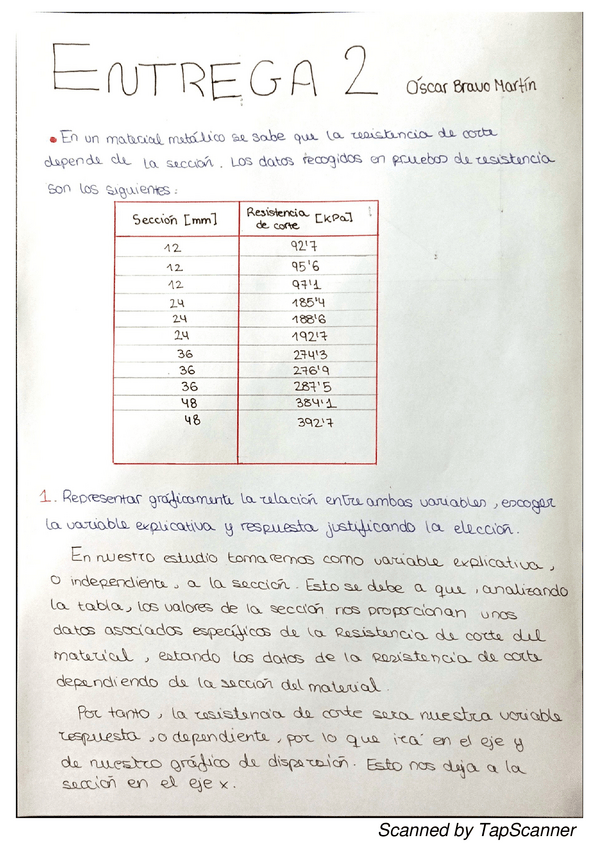 ENTREGA 2 Óscar Bravo Martín
• En un material metálico se sabe que la resistencia de corte
depende de la sección. Los datos recogidos en pruebas de resistencia
son los siguientes:
Sección [mm] Resistencia de corte [KPa]
12 92'7
12 95'6
12 97'1
24 185'4
24 188'6
24 192'7
36 274'3
36 276'9
36 287'5
48 384'1
48 392'7
1. Representar gráficamente la relación entre ambas variables, escoger
la variable explicativa y respuesta justificando la elección.
En nuestro estudio tomaremos como variable explicativa,
o independiente, a la sección. Esto se debe a que, analizando
la tabla, los valores de la sección nos proporcionan unos
datos asociados específicos de la Resistencia de corte del
material, estando los datos de la Resistencia de corte
dependiendo de la sección del material.
Por tanto, la resistencia de corte sera nuestra variable
respuesta, o dependiente, por lo que irá en el eje y
de nuestro gráfico de dispersión. Esto nos deja a la
sección en el eje x.
Scanned by TapScanner